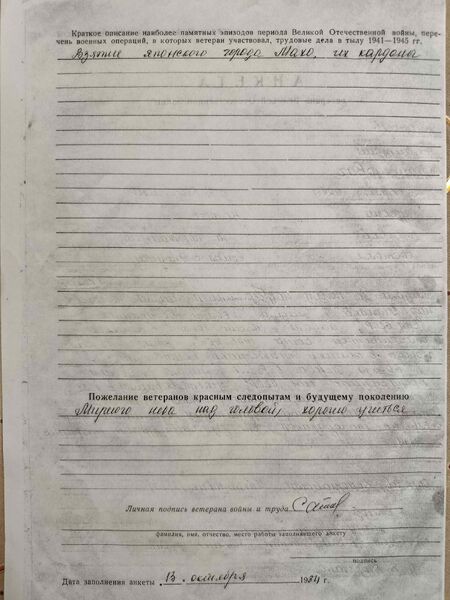 Краткое описание наиболее памятных эпизодов периода Великой Отечественной войны, пере-
чень военных операций, в которых ветеран участвовал, трудовые дела в тылу 1941—1945 гг.
Взятие японского города Махо, их кардоны
Пожелание ветеранов красным следопытам и будущему поколению
Мирного неба над головой, хорошо учиться
Личная подпись ветерана войны и труда
фамилия, имя, отчество, место работы заполнявшего анкету
подпись
Дата заполнения анкеты 13. октября 1984 г.